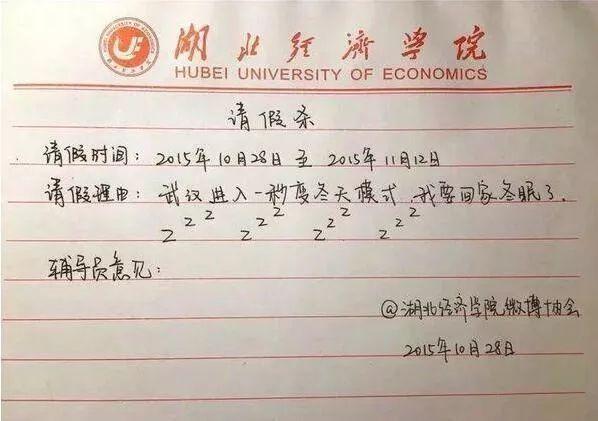 湖北经济学院
HUBEI UNIVERSITY OF ECONOMICS
请假条
请假时间：2015年10月28日至2015年11月12日
请假理由：武汉进入一秒变冬天模式，我要回家冬眠了.
zzz zzz zzz zzz
辅导员意见：
@湖北经济学院微博协会
2015年10月28日